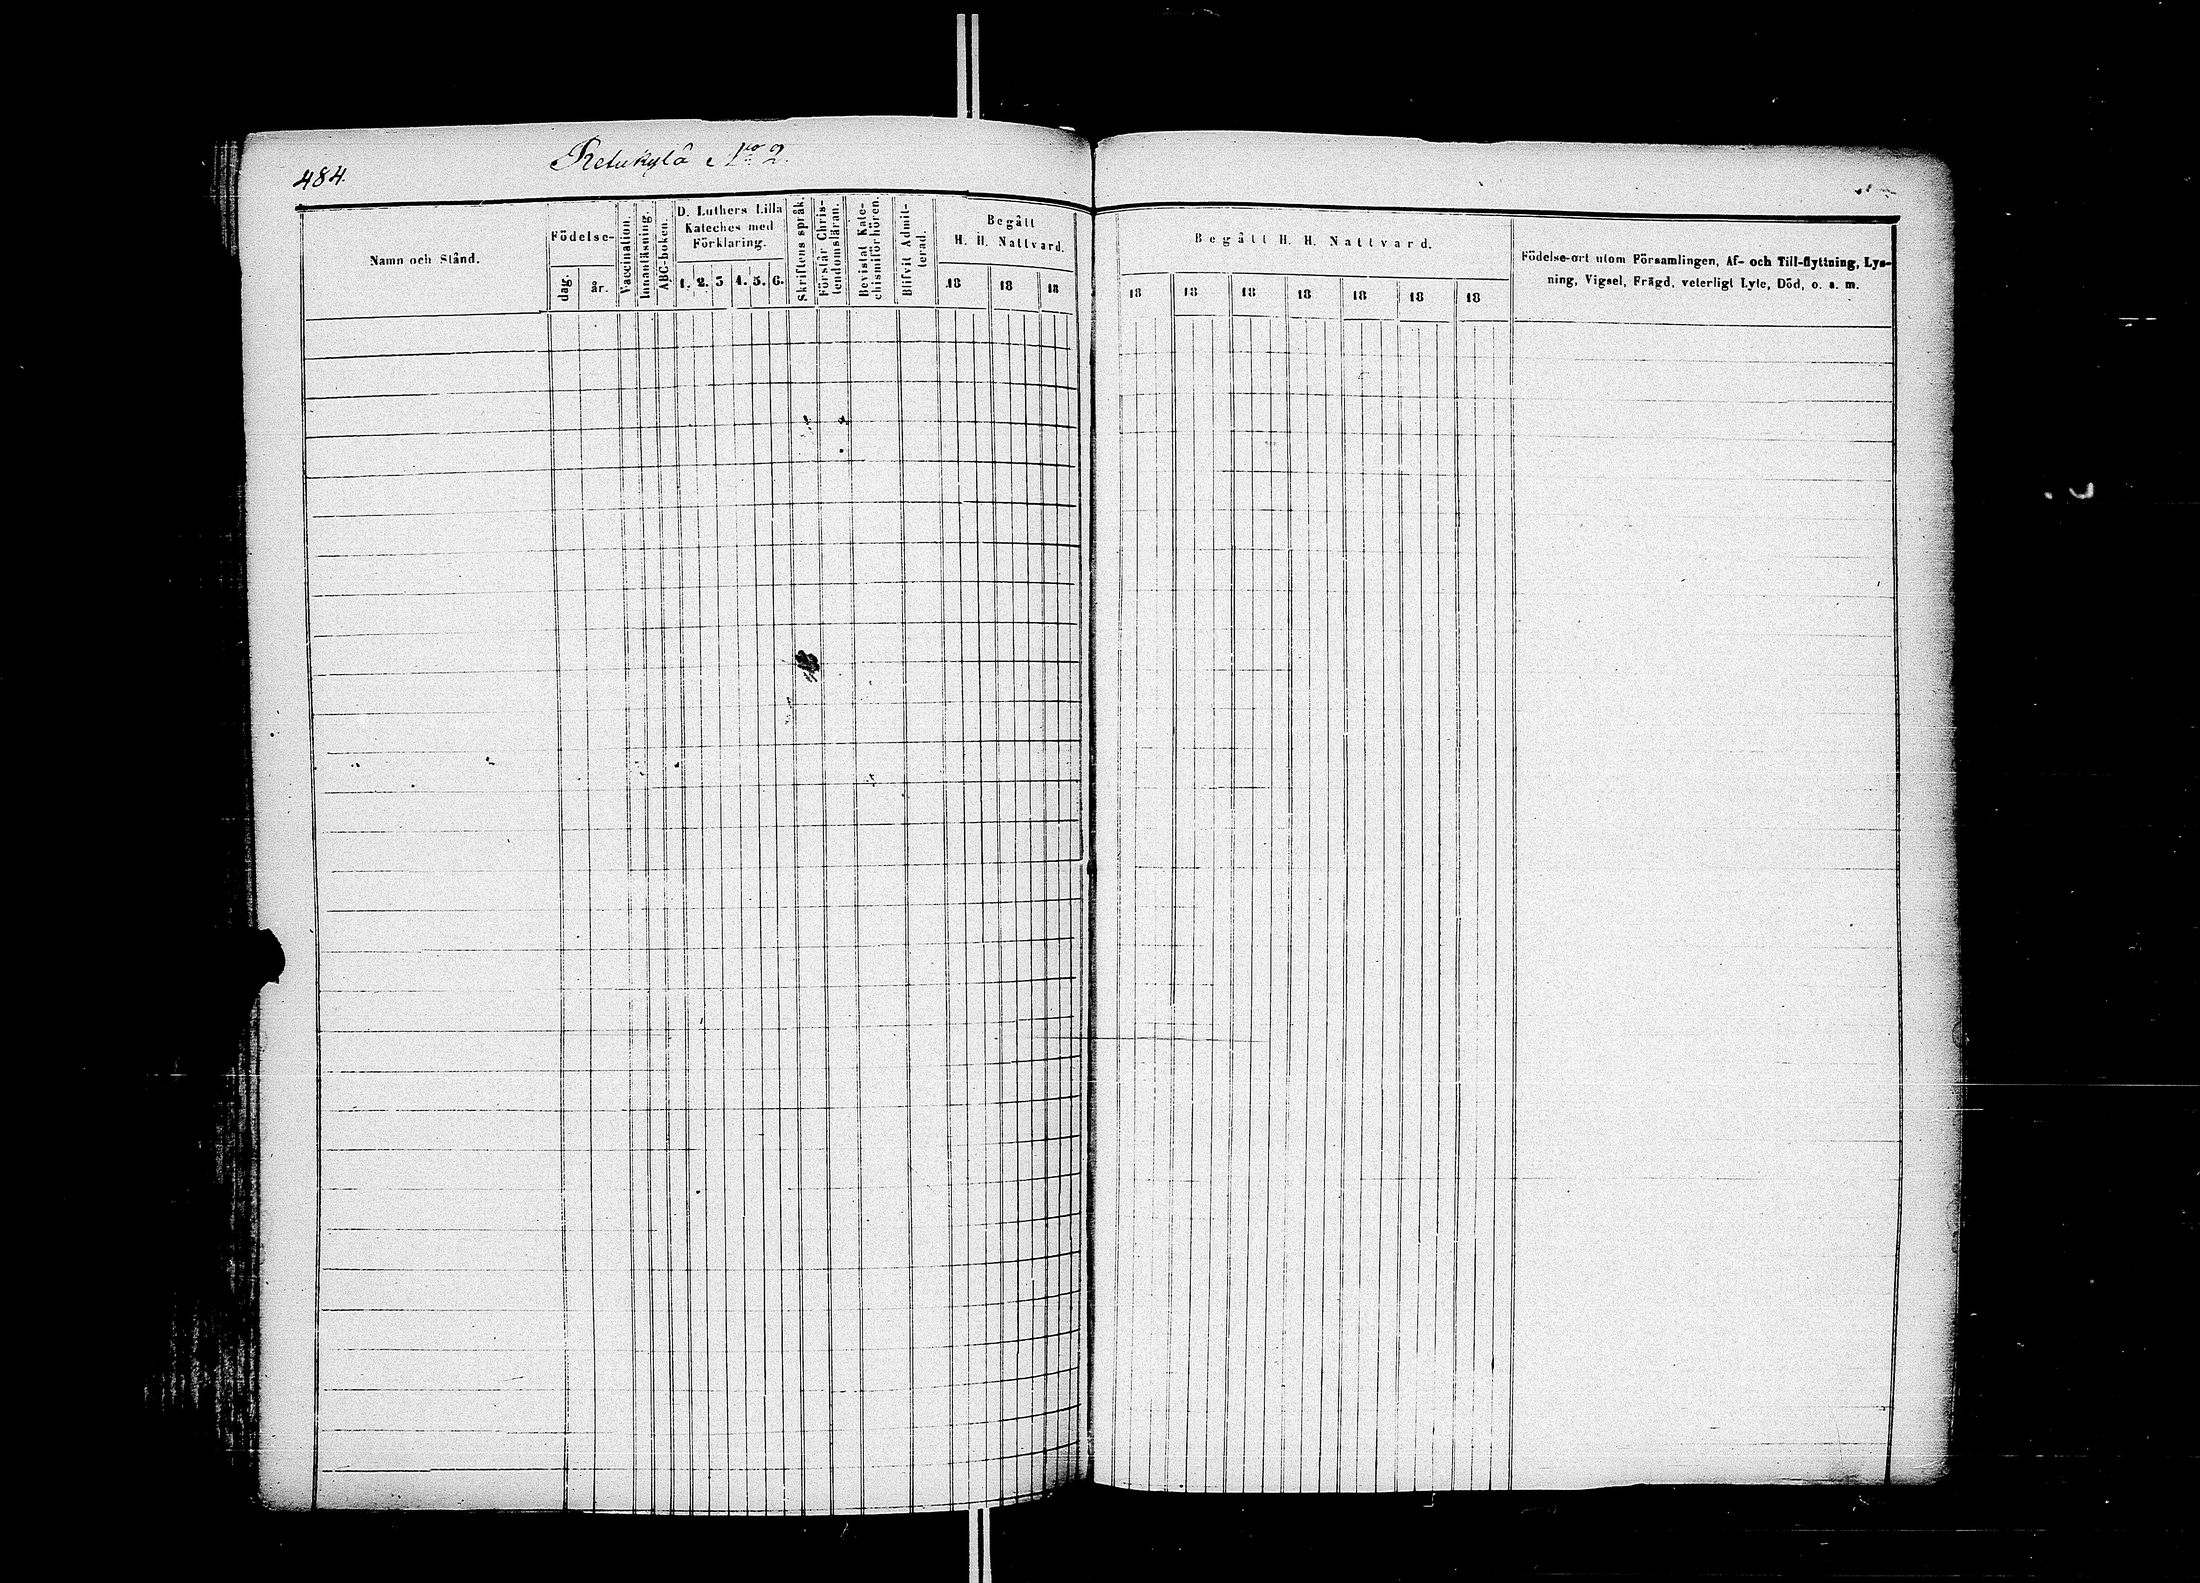 484.
Retukylä No 2.
Namn och Stånd.
Födelse-
dag.
år.
Vaccination.
Innanläsning.
ABC-boken.
D. Luthers Lilla
Kateches med
Förklaring.
1. 2. 3 4. 5. 6.
Skriftens språk.
Förstår Chris-
tendomsläran.
Bevistat Kate-
chismiförhören.
Blifvit Admit-
terad.
Begått
H. H. Nattvard.
18 18 18
Begått H. H. Nattvard.
18 18 18 18 18 18 18
Födelse-ort utom Församlingen, Af- och Till-flyttning, Lys-
ning, Vigsel, Frägd, veterligt Lyte, Död, o. s. m.